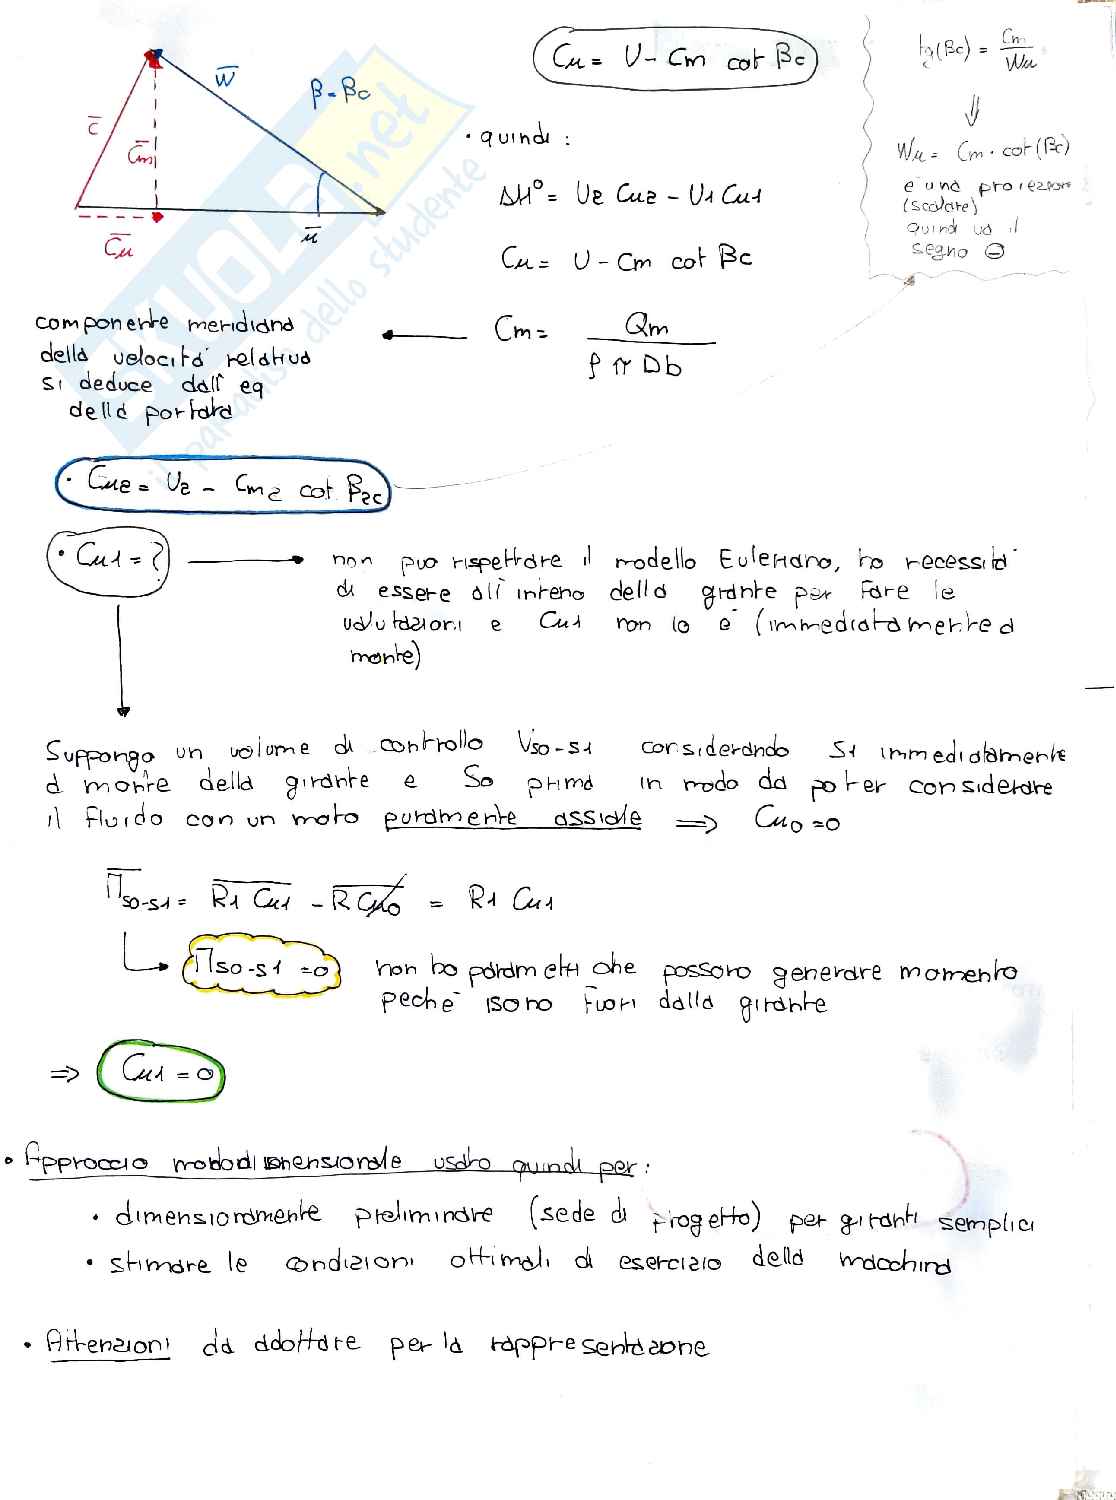 Cu = U - Cm cot βc
tg(βc) = Cm / Wu
⇓
Wu = Cm · cot(βc)
e' una proiezione
(scalare)
quindi va il
segno ⊖
W
β = βc
C
Cm
Cu
u
• quindi :
ΔH° = U2 Cu2 - U1 Cu1
Cu = U - Cm cot βc
Cm = Qm / ρ π D b
componente meridiana
della velocità relativa
si deduce dall' eq
della portata
• Cu2 = U2 - Cm2 cot β2c
• Cu1 = ?
non può rispettare il modello Euleriano, ho necessità
di essere all'inteno della girante per fare le
valutazioni e Cu1 non lo è (immediatamente a
monte)
Suppongo un volume di controllo VS0-S1 considerando S1 immediatamente
a monte della girante e S0 prima in modo da poter considerare
il fluido con un moto puramente assiale ⇒ Cu0 = 0
Πs0-s1 = R1 Cu1 - R Cu0 = R1 Cu1
Πs0-s1 = 0 non ho parametri che possono generare momento
pechè sono fuori dalla girante
⇒ Cu1 = 0
• Approccio monodimensionale usato quindi per :
• dimensionamente preliminare (sede di progetto) per giranti semplici
• stimare le condizioni ottimali di esercizio della macchina
• Attenzioni da adottare per la rappresentazione
SKUOLA.net
il paradiso dello studente